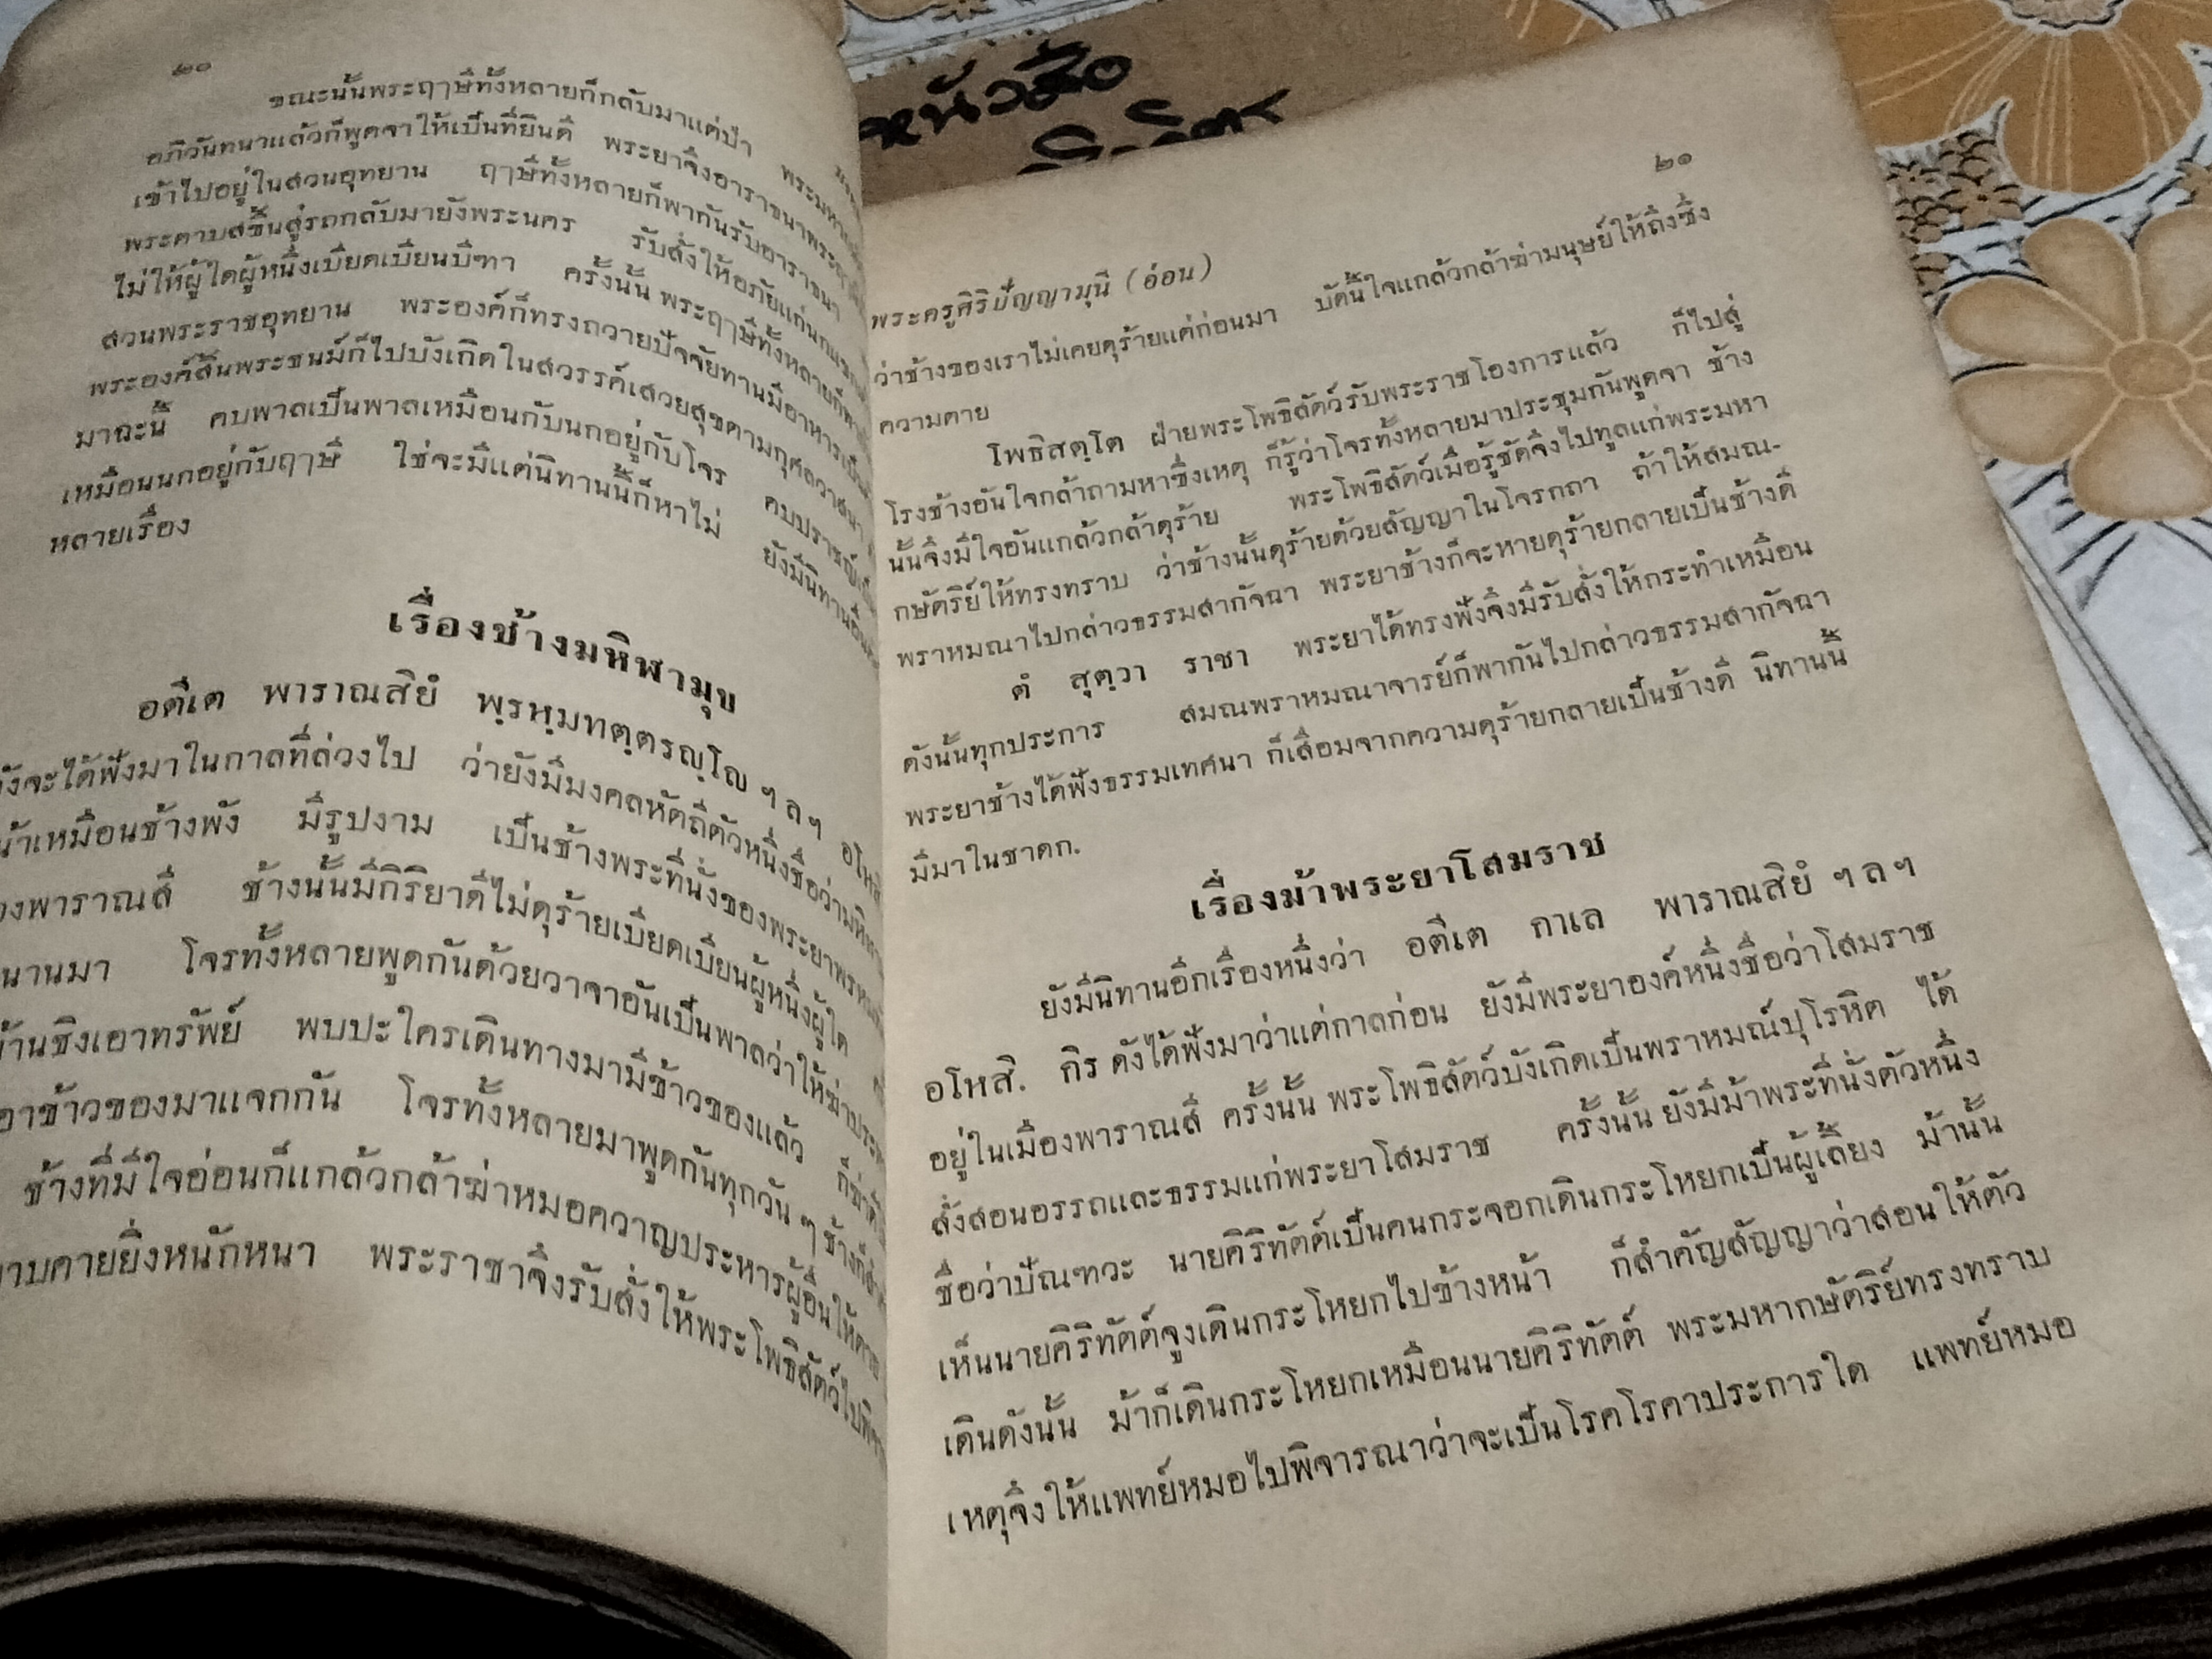 ๒๐
ขณะนั้นพระฤๅษีทั้งหลายก็กลับมาแต่ป่า
อภิวันทนาแล้วก็พูดจาให้เป็นที่ยินดี พระยาจึงอาราธนาพระฤๅษี
เข้าไปอยู่ในสวนอุทยาน ฤๅษีทั้งหลายก็พากันรับอาราธนา
พระดาบสขึ้นสู่รถกลับมายังพระนคร รับสั่งให้อภัยแก่นกแขกเต้า
ไม่ให้ผู้ใดผู้หนึ่งเบียดเบียนบีฑา ครั้งนั้น พระฤๅษีทั้งหลายก็
สวนพระราชอุทยาน พระองค์ก็ทรงถวายปัจจัยทานมีอาหารเป็น
พระองค์สิ้นพระชนม์ก็ไปบังเกิดในสวรรค์เสวยสุขตามกุศล
มาฉะนี้ คบพาลเป็นพาลเหมือนกับนกอยู่กับโจร คบปราชญ์
เหมือนนกอยู่กับฤๅษี ใช่จะมีแต่นิทานนี้ก็หาไม่ ยังมีนิทานอื่น
หลายเรื่อง
เรื่องช้างมหิฬามุข
อตีเต พาราณสิยํ พฺรหฺมทตฺตรญฺโญ ฯ ล ฯ อโหสิ
จะได้ฟังมาในกาลที่ล่วงไป ว่ายังมีมงคลหัตถีตัวหนึ่งชื่อว่ามหิฬา
เหมือนช้างพัง มีรูปงาม เป็นช้างพระที่นั่งของพระยาพรหม
พาราณสี ช้างนั้นมีกิริยาดีไม่ดุร้ายเบียดเบียนผู้หนึ่งผู้ใด
นานมา โจรทั้งหลายพูดกันด้วยวาจาอันเป็นพาลว่าให้ฆ่า
ชิงเอาทรัพย์ พบปะใครเดินทางมามีข้าวของแล้ว ก็ฆ่า
เอาข้าวของมาแจกกัน โจรทั้งหลายมาพูดกันทุกวัน ๆ ช้างก็
ช้างที่มีใจอ่อนก็แกล้วกล้าฆ่าหมอควาญประหารผู้อื่นให้ตาย
ตายยิ่งหนักหนา พระราชาจึงรับสั่งให้พระโพธิสัตว์ไป
หนังสือ
๒๑
พระครูศิริปัญญามุนี (อ่อน)
ว่าช้างของเราไม่เคยดุร้ายแต่ก่อนมา บัดนี้ใจแกล้วกล้าฆ่ามนุษย์ให้ถึงซึ่ง
ความตาย
โพธิสตฺโต ฝ่ายพระโพธิสัตว์รับพระราชโองการแล้ว ก็ไปสู่
โรงช้างอันใจกล้าถามหาซึ่งเหตุ ก็รู้ว่าโจรทั้งหลายมาประชุมกันพูดจา ช้าง
นั้นจึงมีใจอันแกล้วกล้าดุร้าย พระโพธิสัตว์เมื่อรู้ชัดจึงไปทูลแก่พระมหา
กษัตริย์ให้ทรงทราบ ว่าช้างนั้นดุร้ายด้วยสัญญาในโจรกถา ถ้าให้สมณ-
พราหมณาไปกล่าวธรรมสากัจฉา พระยาช้างก็จะหายดุร้ายกลายเป็นช้างดี
ตํ สุตฺวา ราชา พระยาได้ทรงฟังจึงมีรับสั่งให้กระทำเหมือน
ดังนั้นทุกประการ สมณพราหมณาจารย์ก็พากันไปกล่าวธรรมสากัจฉา
พระยาช้างได้ฟังธรรมเทศนา ก็เสื่อมจากความดุร้ายกลายเป็นช้างดี นิทานนี้
มีมาในชาดก.
เรื่องม้าพระยาโสมราช
ยังมีนิทานอีกเรื่องหนึ่งว่า อตีเต กาเล พาราณสิยํ ฯ ล ฯ
อโหสิ. กิร ดังได้ฟังมาว่าแต่กาลก่อน ยังมีพระยาองค์หนึ่งชื่อว่าโสมราช
อยู่ในเมืองพาราณสี ครั้งนั้น พระโพธิสัตว์บังเกิดเป็นพราหมณ์ปุโรหิต ได้
สั่งสอนอรรถและธรรมแก่พระยาโสมราช ครั้งนั้น ยังมีม้าพระที่นั่งตัวหนึ่ง
ชื่อว่าปัณฑวะ นายคิริทัตต์เป็นคนกระจอกเดินกระโหยกเป็นผู้เลี้ยง ม้านั้น
เห็นนายคิริทัตต์จูงเดินกระโหยกไปข้างหน้า ก็สำคัญสัญญาว่าสอนให้ตัว
เดินดังนั้น ม้าก็เดินกระโหยกเหมือนนายคิริทัตต์ พระมหากษัตริย์ทรงทราบ
เหตุจึงให้แพทย์หมอไปพิจารณาว่าจะเป็นโรคโรคาประการใด แพทย์หมอ